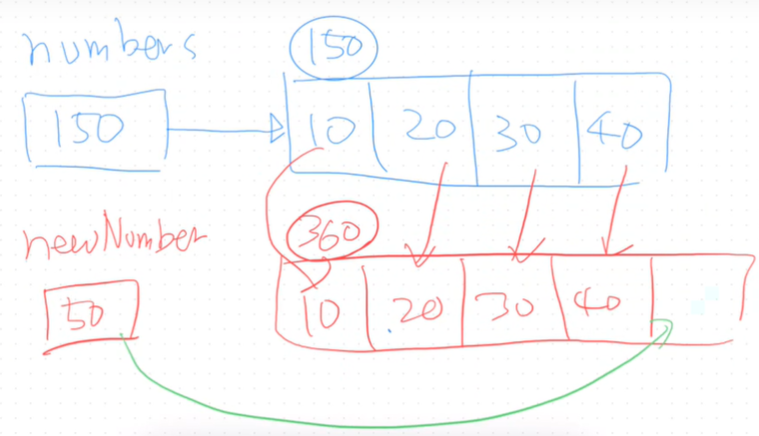 numbers 150
150 10 20 30 40
newNumber 360
50 10 20 30 40